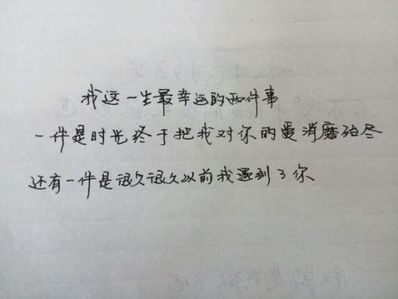 我这一生最幸运的两件事
一件是时光终于把我对你的爱消磨殆尽
还有一件是很久很久以前我遇到了你